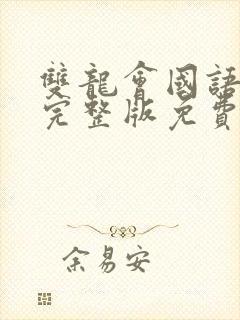 雙龍會國語
完整版免費
余易安